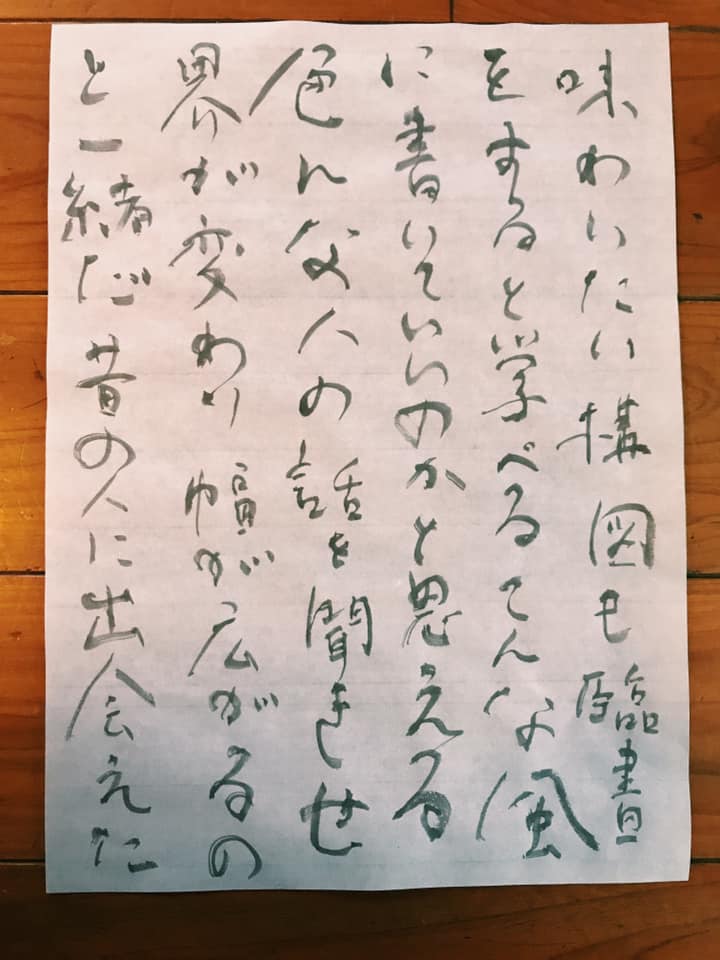 味わいたい構図も臨書
をすると学べるこんな風
に書いていいのかと思える
色んな人の話を聞き世
界が変わり幅が広がるの
と一緒だ昔の人に出会えた